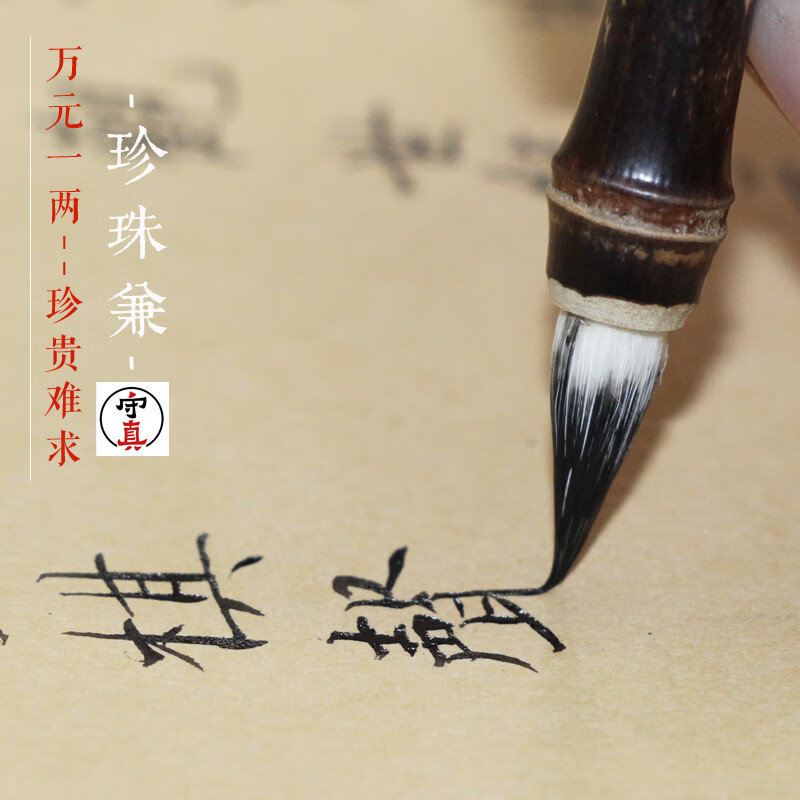 -珍珠兼-
守真
万元一两--珍贵难求
棋